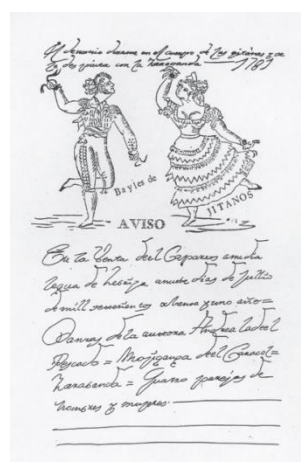 El demonio duerme en el cuerpo de las gitanas y se
despierta con la zarabanda 1781
Bayles de JITANOS
AVISO
En la Venta del Caparros amedia
legua de Lebrija anuebe dias de Jullio
de mill setecientos ochenta y uno años =
Danzas de la aurora Andrea la del
Pescado = Mojiganga del Caracol =
Zarabanda = Quatro parejas de
hombres y mugeres